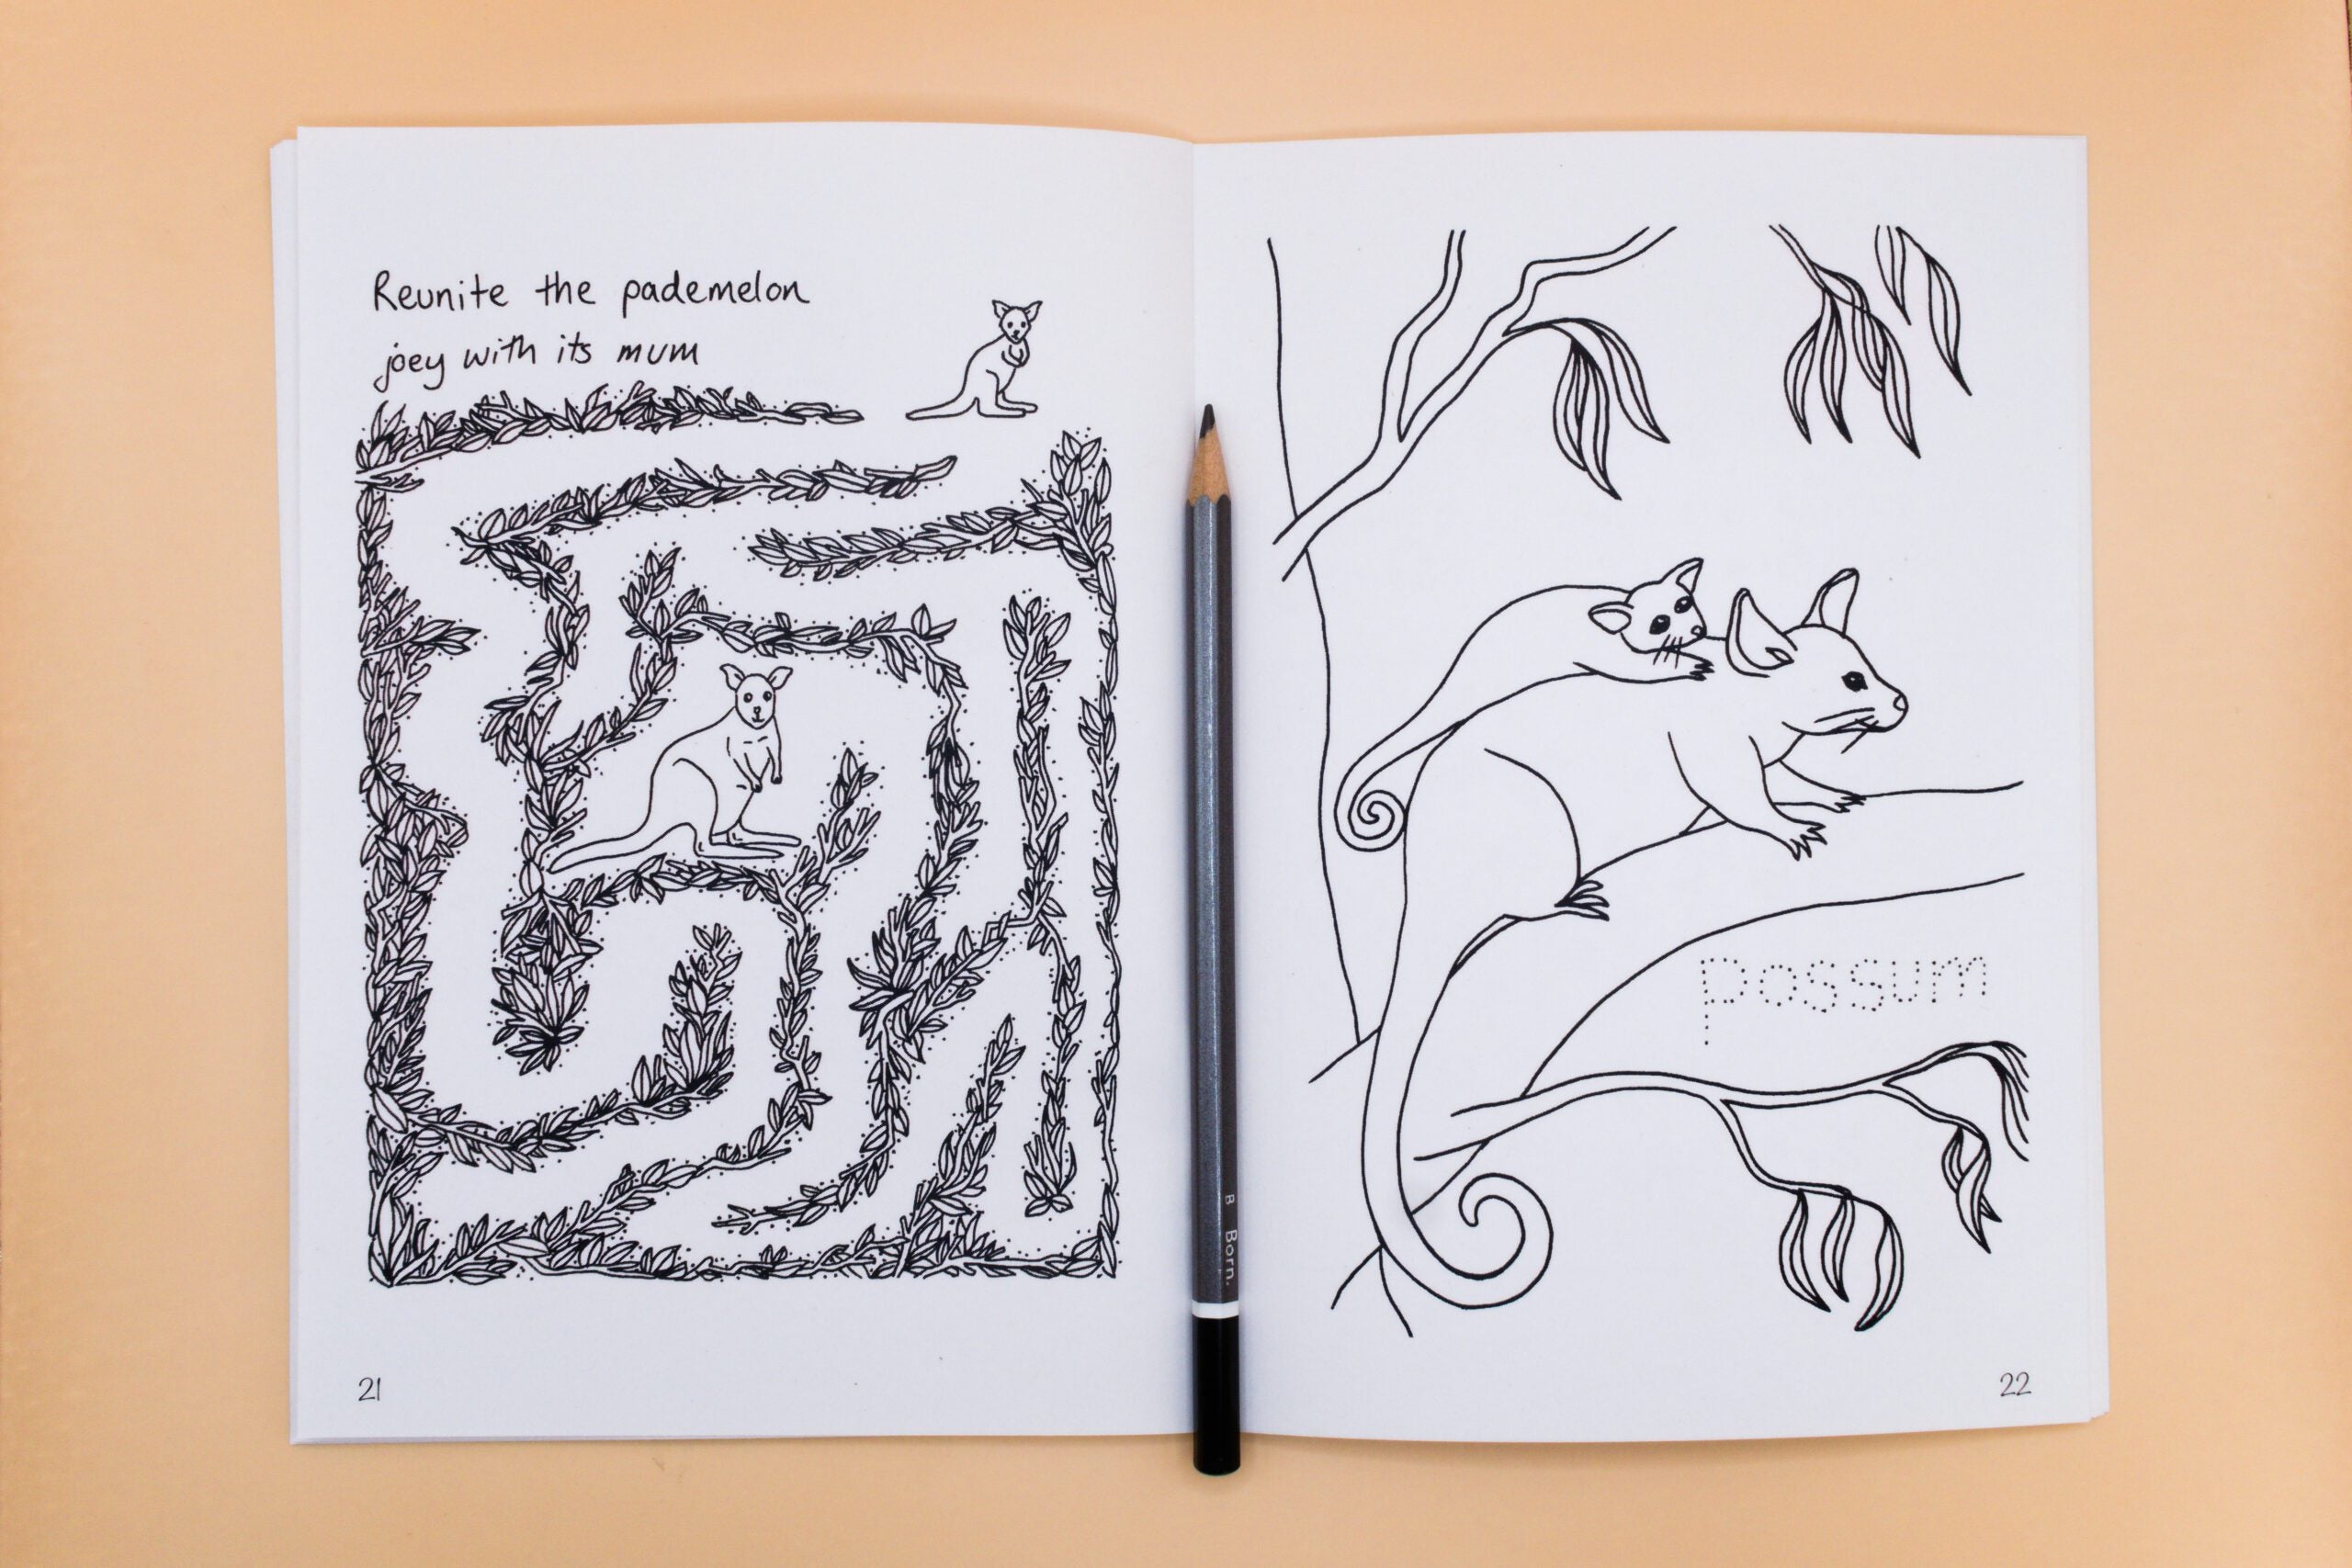 Reunite the pademelon
joey with its mum
21
B Born.
possum
22